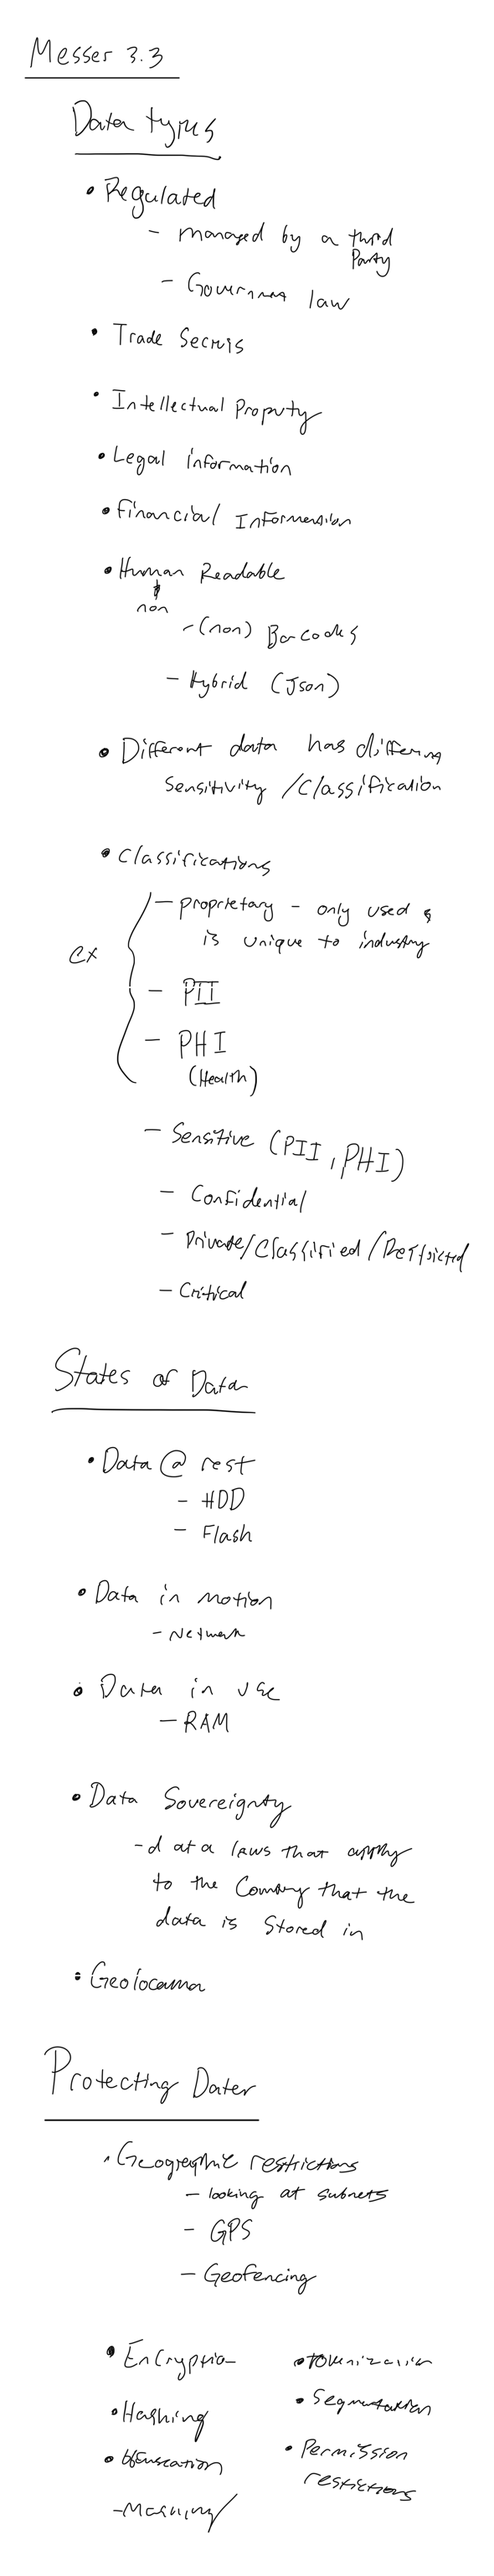 Messer 3.3
Data types
• Regulated
- managed by a third
Party
- Government law
• Trade Secrets
• Intellectual Property
• Legal information
• Financial Information
• Human Readable
non
- (non) Barcodes
- Hybrid (Json)
• Different data has differing
Sensitivity / Classification
• Classifications
- proprietary - only used &
is unique to industry
ex
- PII
- PHI
(Health)
- Sensitive (PII, PHI)
- Confidential
- Private/Classified/Restricted
- Critical
States of Data
• Data @ rest
- HDD
- Flash
• Data in motion
- Network
• Data in use
- RAM
• Data Sovereignty
- data laws that apply
to the Country that the
data is Stored in
• Geolocation
Protecting Data
• Geographic restrictions
- looking at subnets
- GPS
- Geofencing
• Encryption
• Hashing
• Obfuscation
- Masking
• Tokenization
• Segmentation
• Permission
restictions